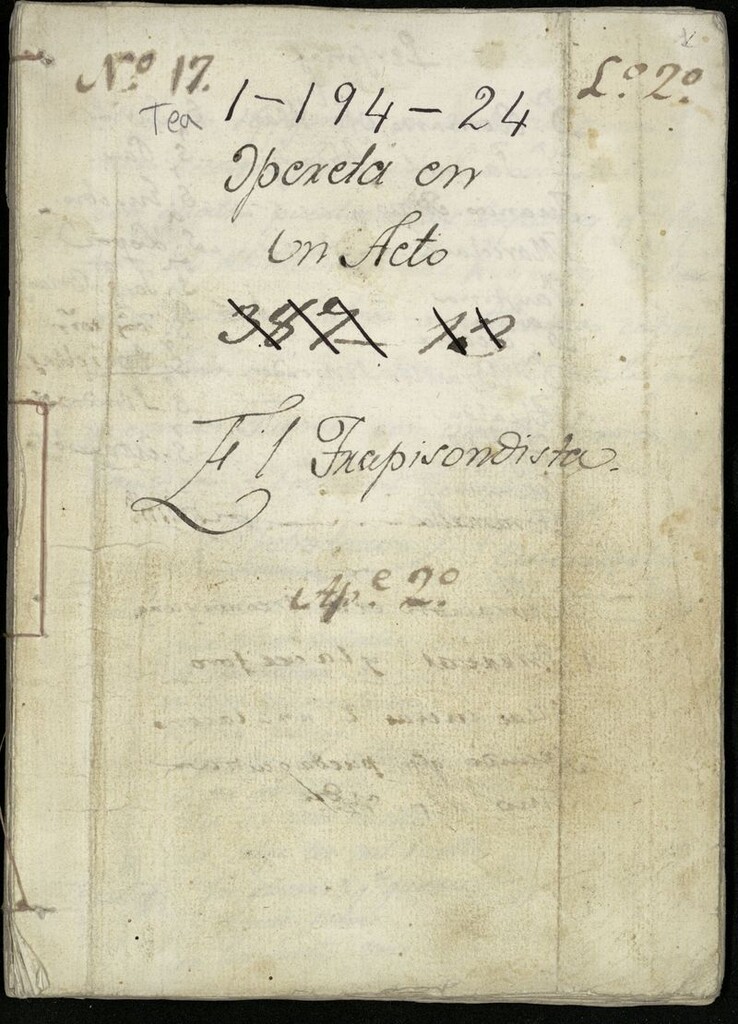 Nº 17.
Lº 2º
Tea 1-194-24
Opereta en
Un Acto
El Trapisondista.
Ap.e 2º